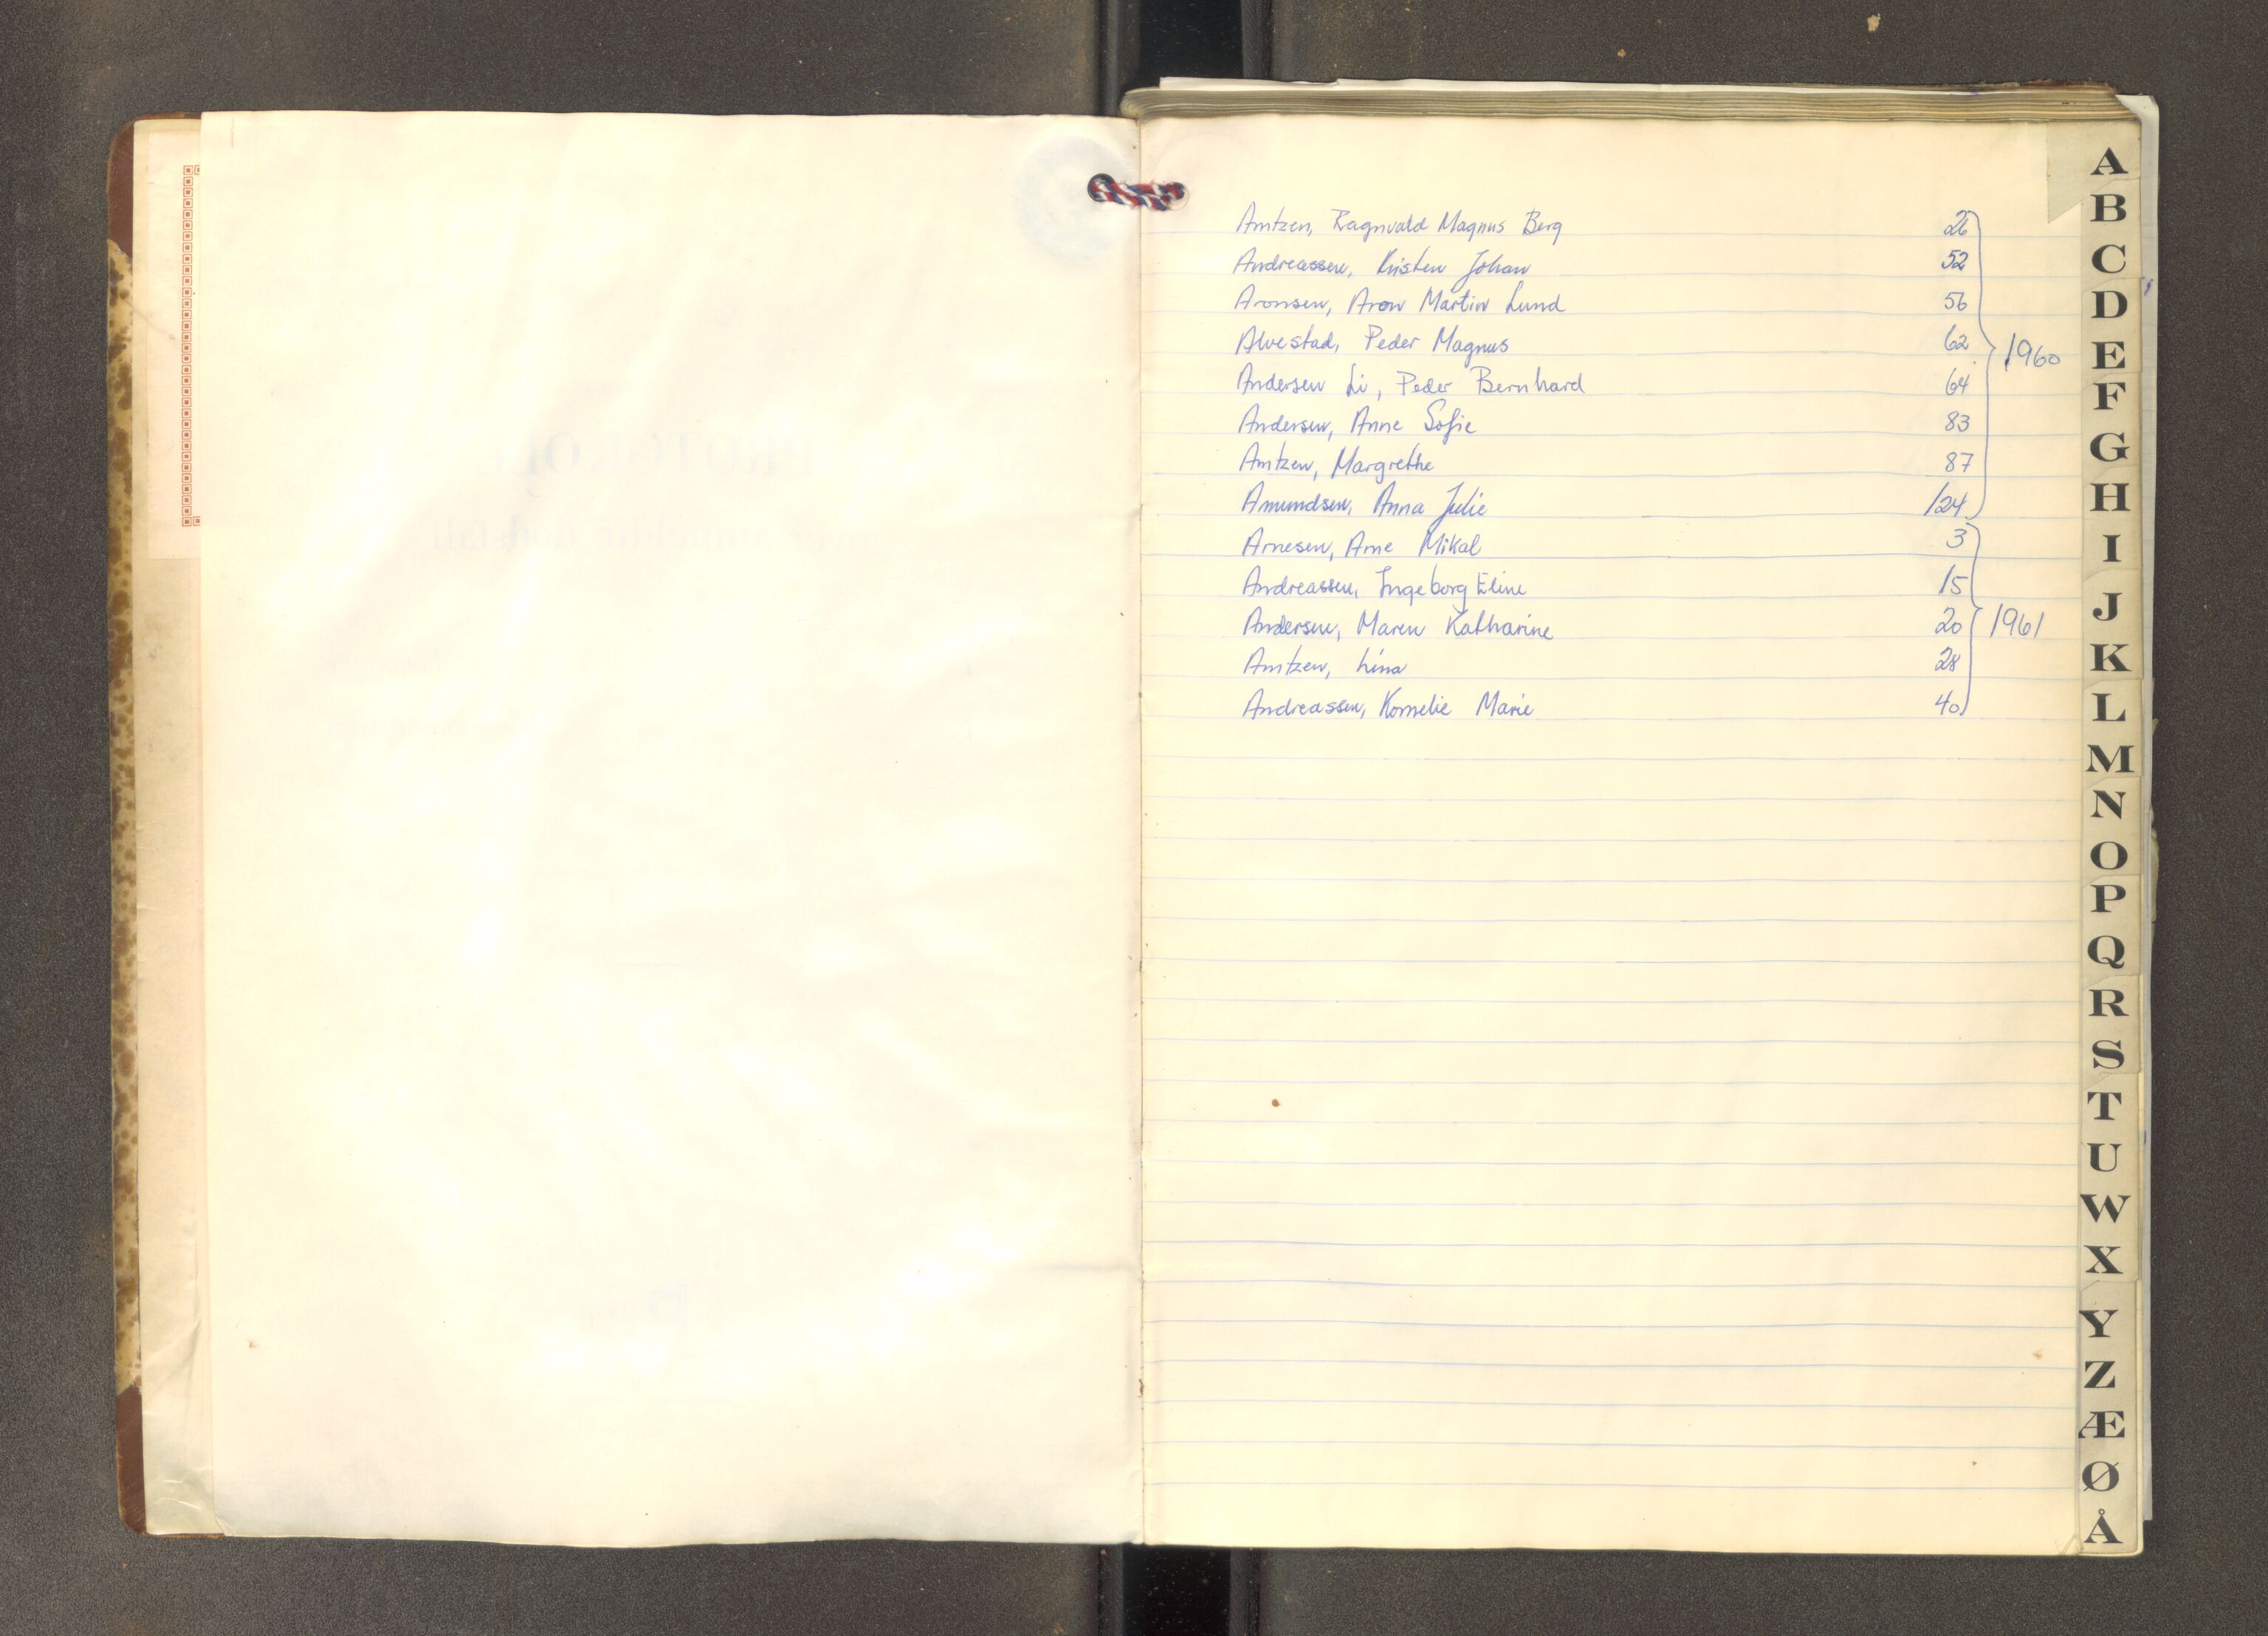 Arntzen, Ragnvald Magnus Berg 26
Andreassen, Kristen Johan 52
Aronsen, Aron Martin Lund 56
Alvestad, Peder Magnus 62
1960
Andersen Li, Peder Bernhard 64
Andersen, Anne Sofie 83
Arntzen, Margrethe 87
Amundsen, Anna Julie 124
Arnesen, Arne Mikal 3
Andreassen, Ingeborg Eline 15
Andersen, Maren Katharine 20
1961
Arntzen, Lina 28
Andreassen, Kornelie Marie 40
A
B
C
D
E
F
G
H
I
J
K
L
M
N
O
P
Q
R
S
T
U
W
X
Y
Z
Æ
Ø
Å